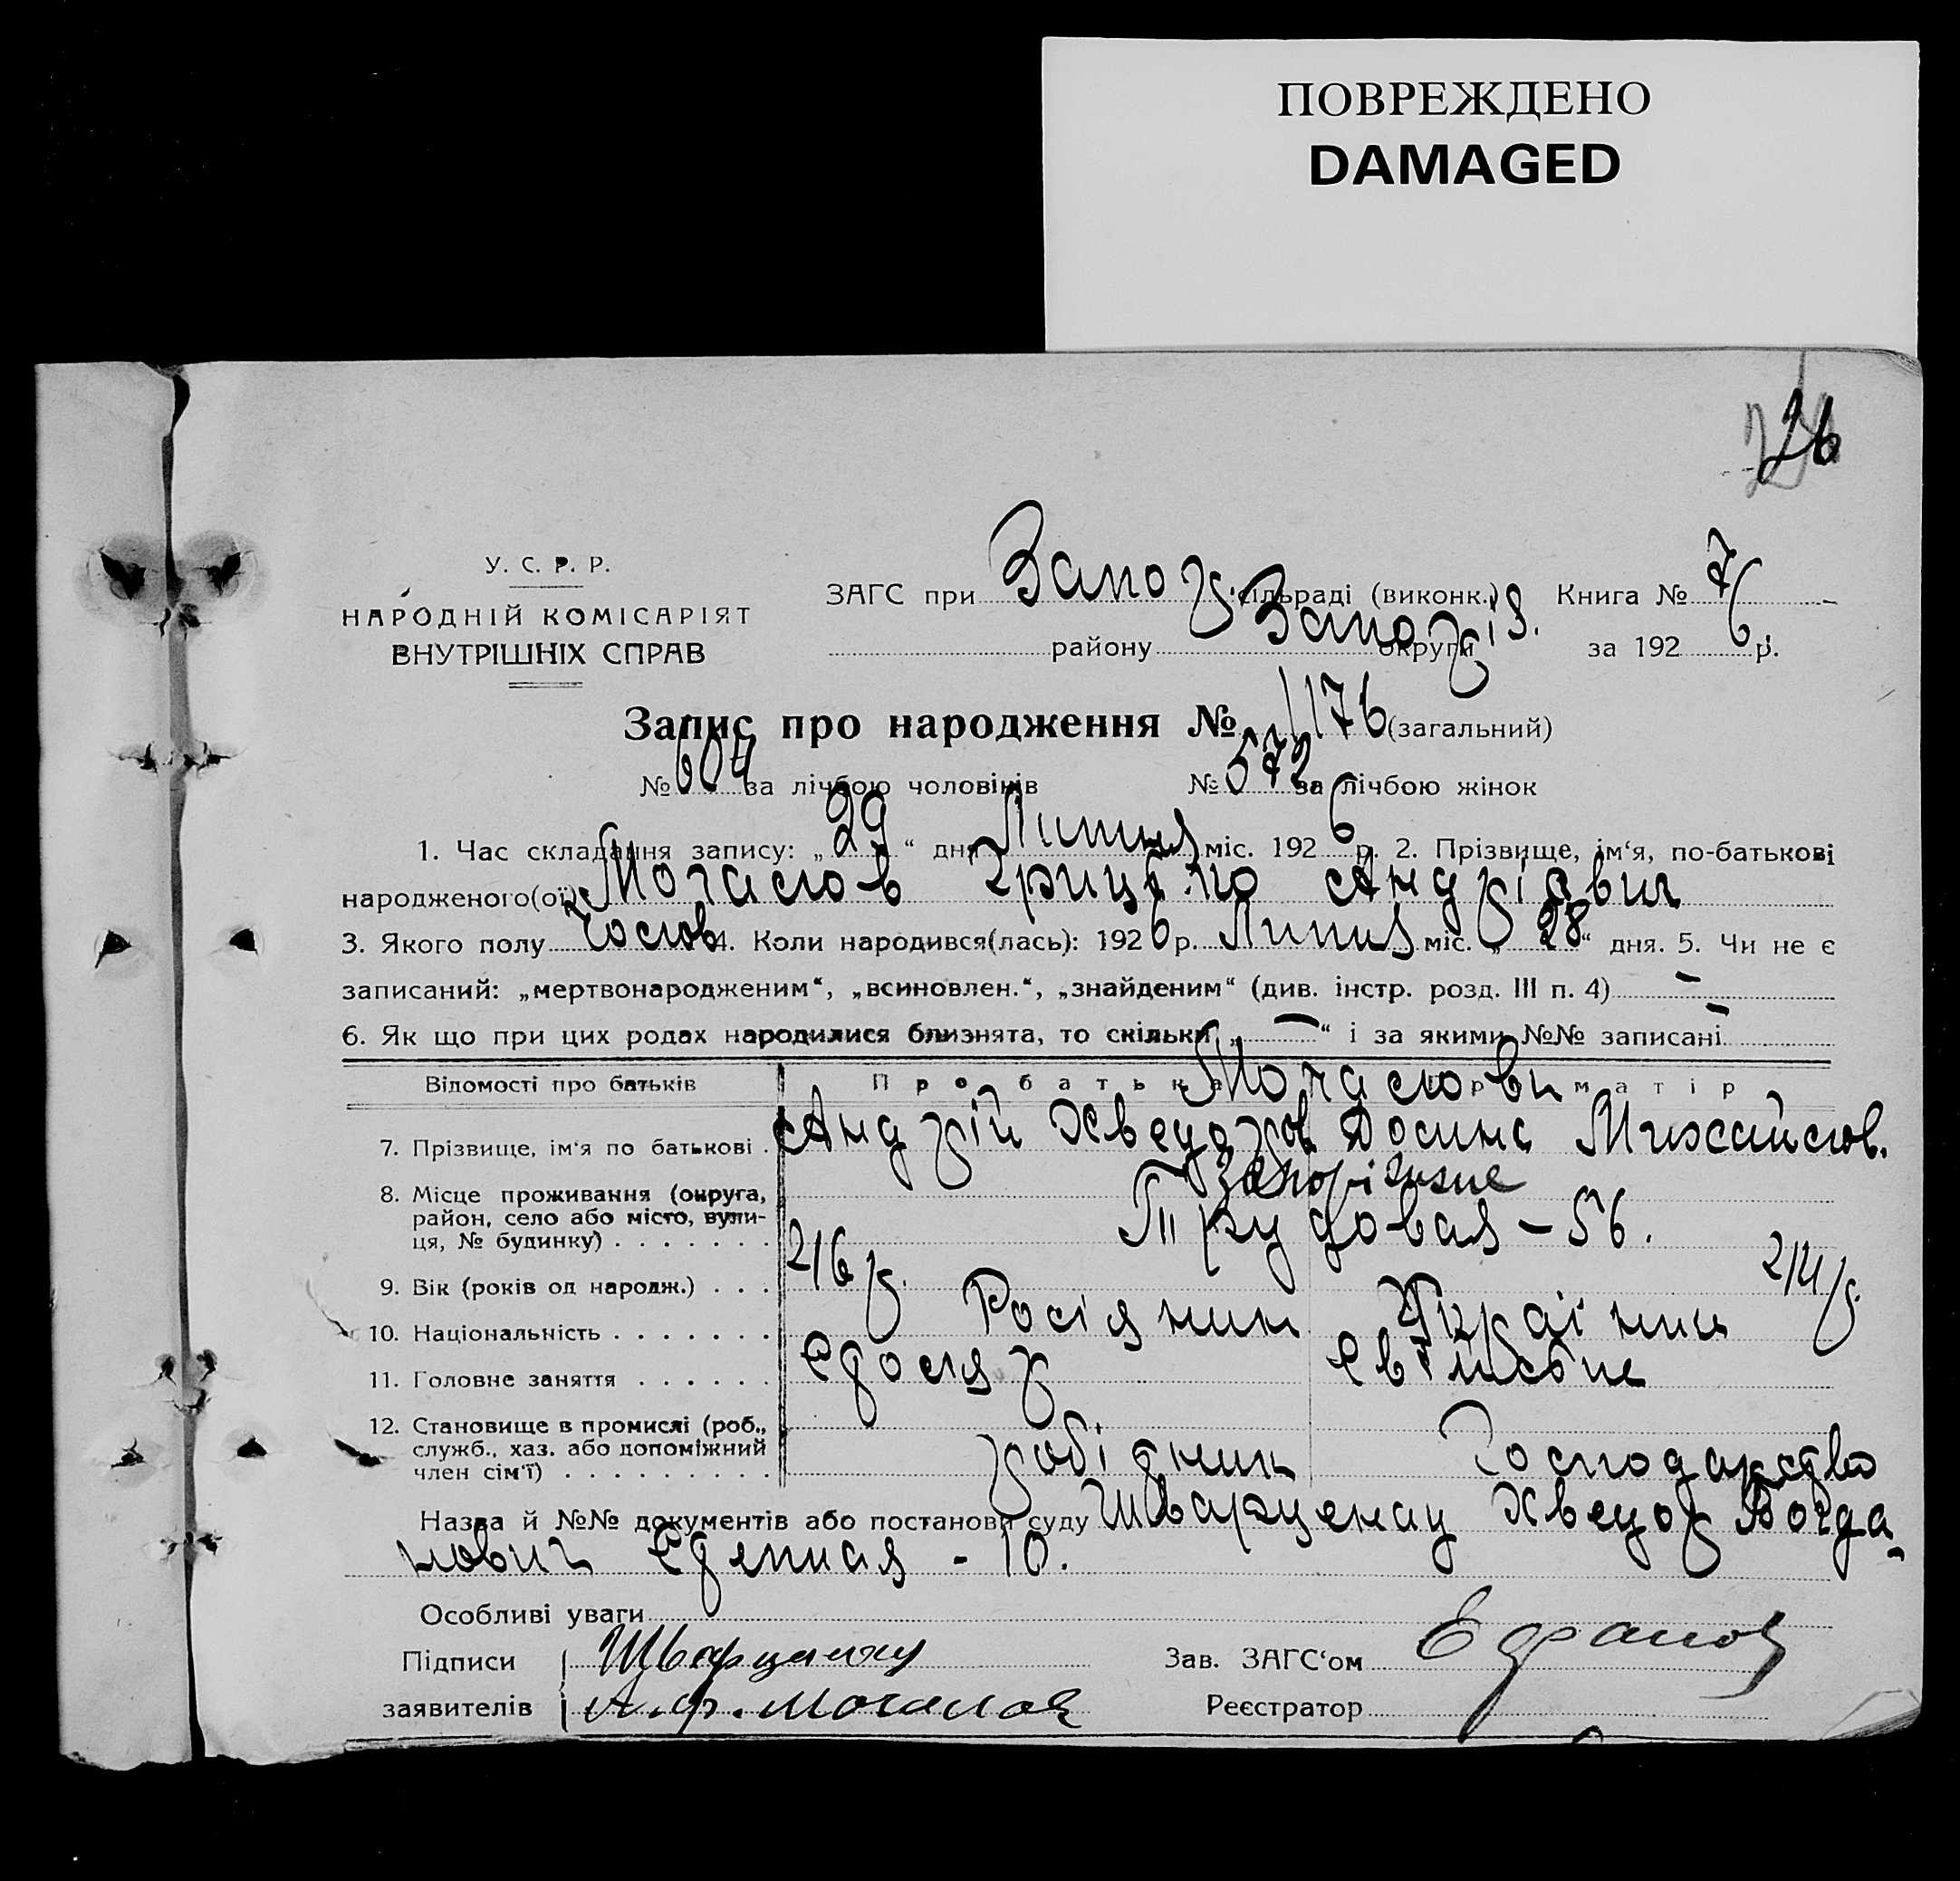 ПОВРЕЖДЕНО
DAMAGED
26
У. С. Р. Р.
НАРОДНІЙ КОМІСАРІЯТ
ВНУТРІШНІХ СПРАВ
ЗАГС при Запор. сільраді (виконк.) Книга № 7
району Запоріз. округи за 1926 р.
Запис про народження № 1176 (загальний)
№ 604 за лічбою чоловіків № 572 за лічбою жінок
1. Час складання запису: „29“ дня Липня міс. 1926 р. 2. Прізвище, ім‘я, по-батькові
народженого(ої) Могилов Грицько Андрієвич
3. Якого полу 4. Коли народився(лась): 1926 р. Липня міс. „28“ дня. 5. Чи не є
записаний: „мертвонародженим“, „всиновлен.“, „знайденим“ (див. інстр. розд. III п. 4) —
6. Як що при цих родах народилися близнята, то скільки „—“ і за якими №№ записані —
Відомості про батьків Про батька Про матір
7. Прізвище, ім‘я по батькові . Андрій Хведоров Михайлов.
8. Місце проживання (округа, Запоріжжє
район, село або місто, вули- Трудовая – 56.
ця, № будинку) . . . . . . .
9. Вік (років од народж.) . . . 26 р. 24 р.
10. Національність . . . . . . . Росіянин Українка
11. Головне заняття . . . . . .
12. Становище в промислі (роб.,
служб., хаз. або допоміжний робітник Господарство
член сім‘ї) . . . . . . . . .
Назва й №№ документів або постанови суду Хведор Богда-
нович - 10.
Особливі уваги
Підписи Зав. ЗАГС‘ом
заявителів Реєстратор